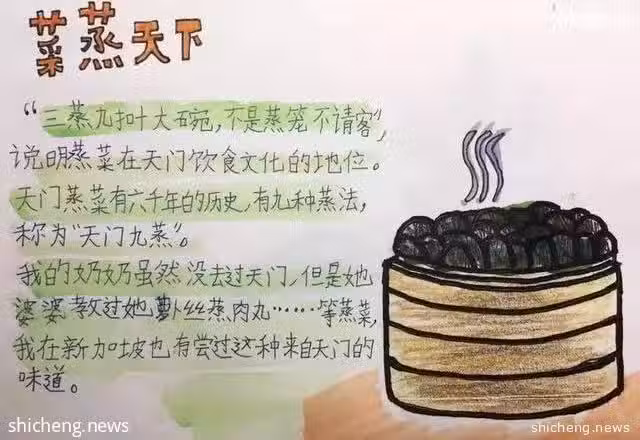 菜蒸天下
“三蒸九扣十大碗，不是蒸笼不请客”，
说明蒸菜在天门饮食文化的地位。
天门蒸菜有六千年的历史，有九种蒸法，
称为“天门九蒸”。
我的奶奶虽然没去过天门，但是她
婆婆教过她萝卜丝蒸肉丸……等蒸菜，
我在新加坡也有尝过这种来自天门的
味道。
shicheng.news
shicheng.news